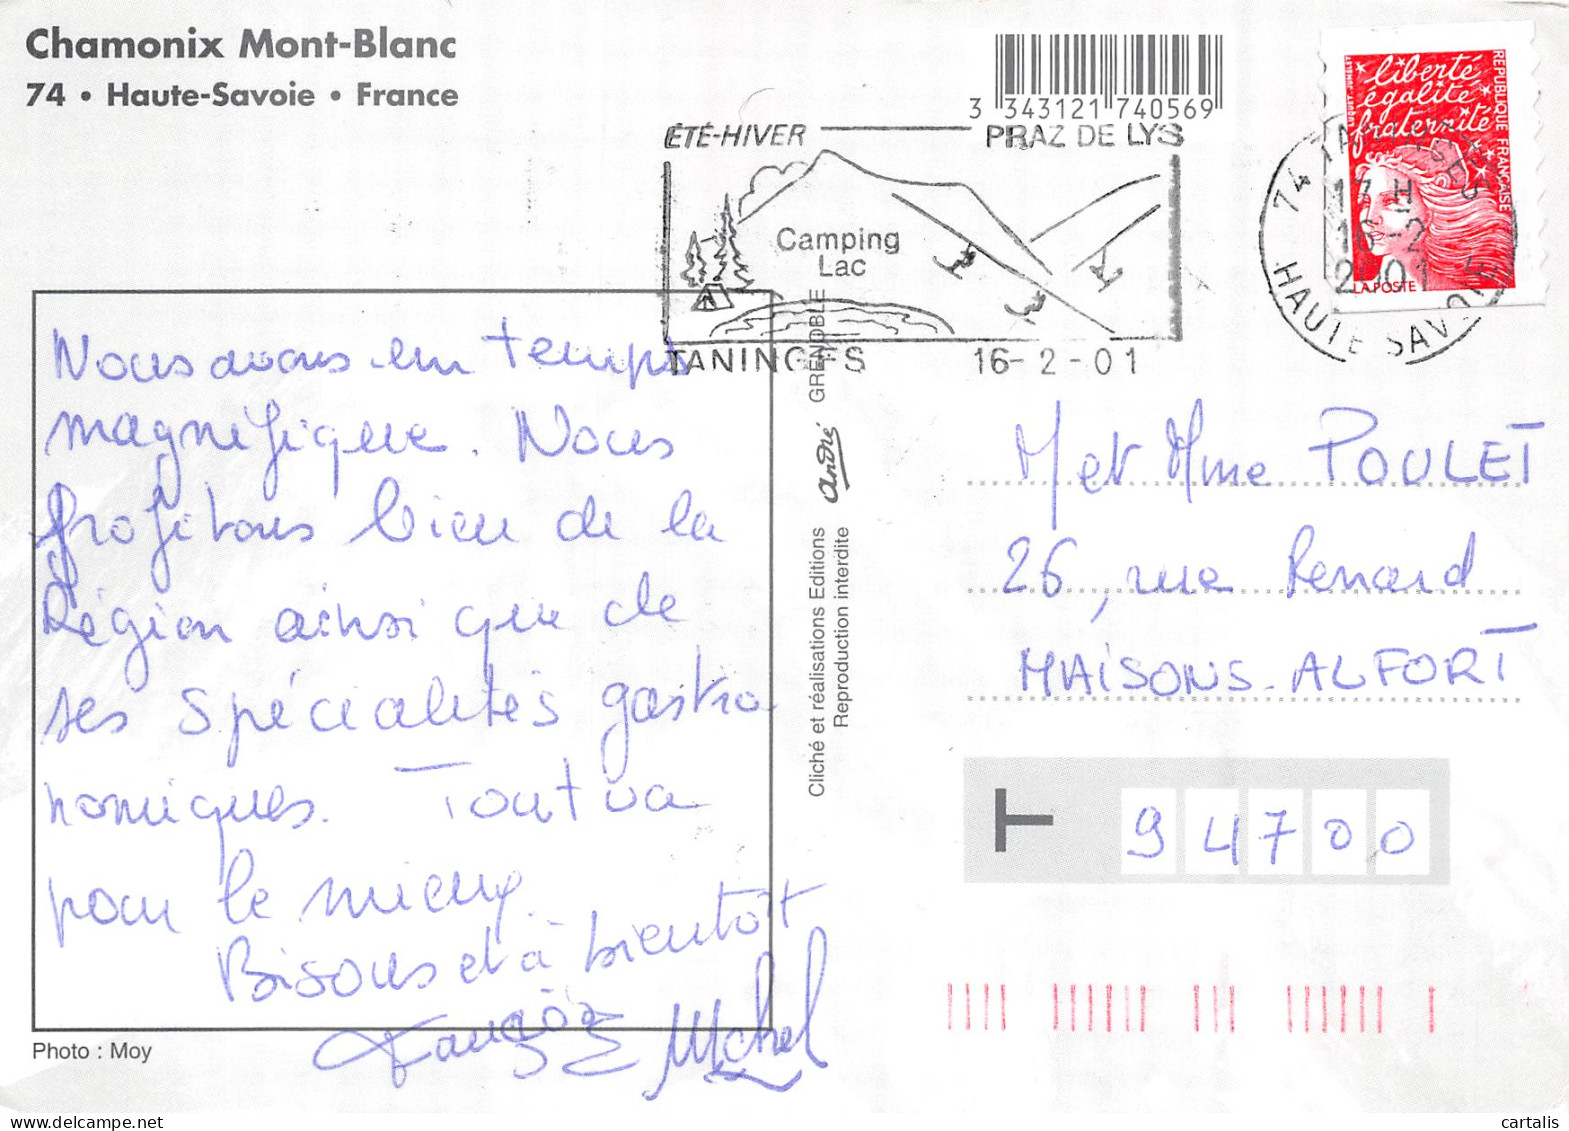 Chamonix Mont-Blanc
74 • Haute-Savoie • France
3 343121 740569
ÉTÉ-HIVER PRAZ DE LYS
Camping
Lac
TANINGES 16-2-01
liberté
égalité
fraternité
RÉPUBLIQUE FRANÇAISE
LA POSTE
74 TANINGES
13 H
16-2
2001
HAUTE SAVOIE
Nous avons un temps
magnifique. Nous
profitons bien de la
Région ainsi que de
ses spécialités gastro
nomiques. Tout va
pour le mieux.
Bisous et à bientôt
Michel
Photo : Moy
Cliché et réalisations Editions André GRENOBLE
Reproduction interdite
M et Mme POULET
26, rue Renard
MAISONS-ALFORT
94700
cartalis